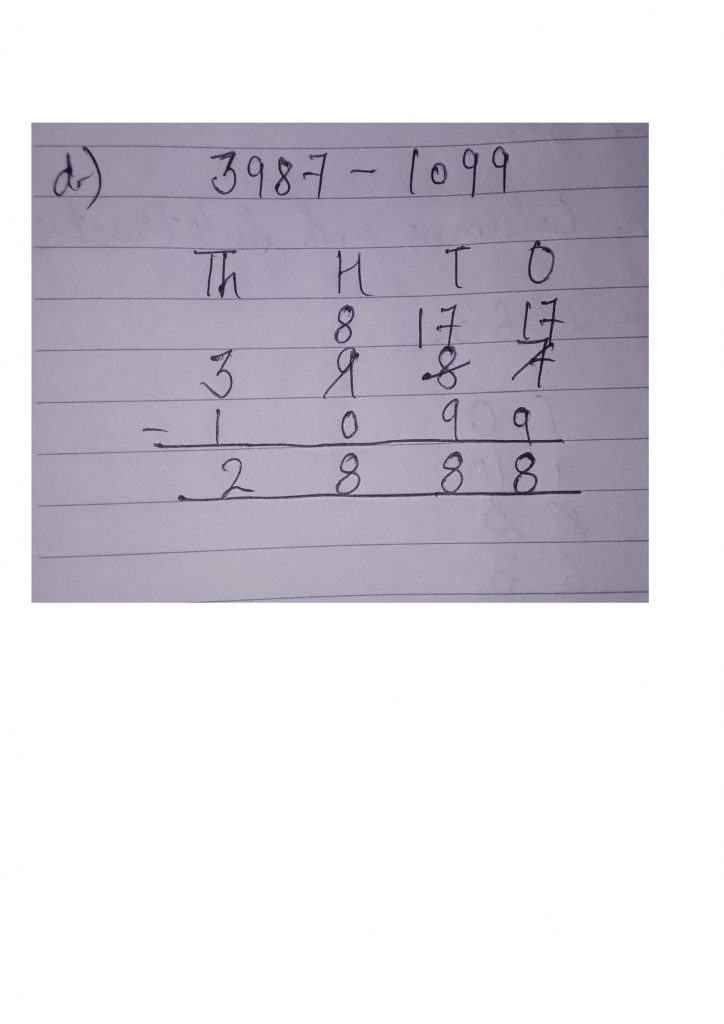 d) 3987 - 1099
Th H T O
8 17 17
3 9 8 7
- 1 0 9 9
2 8 8 8